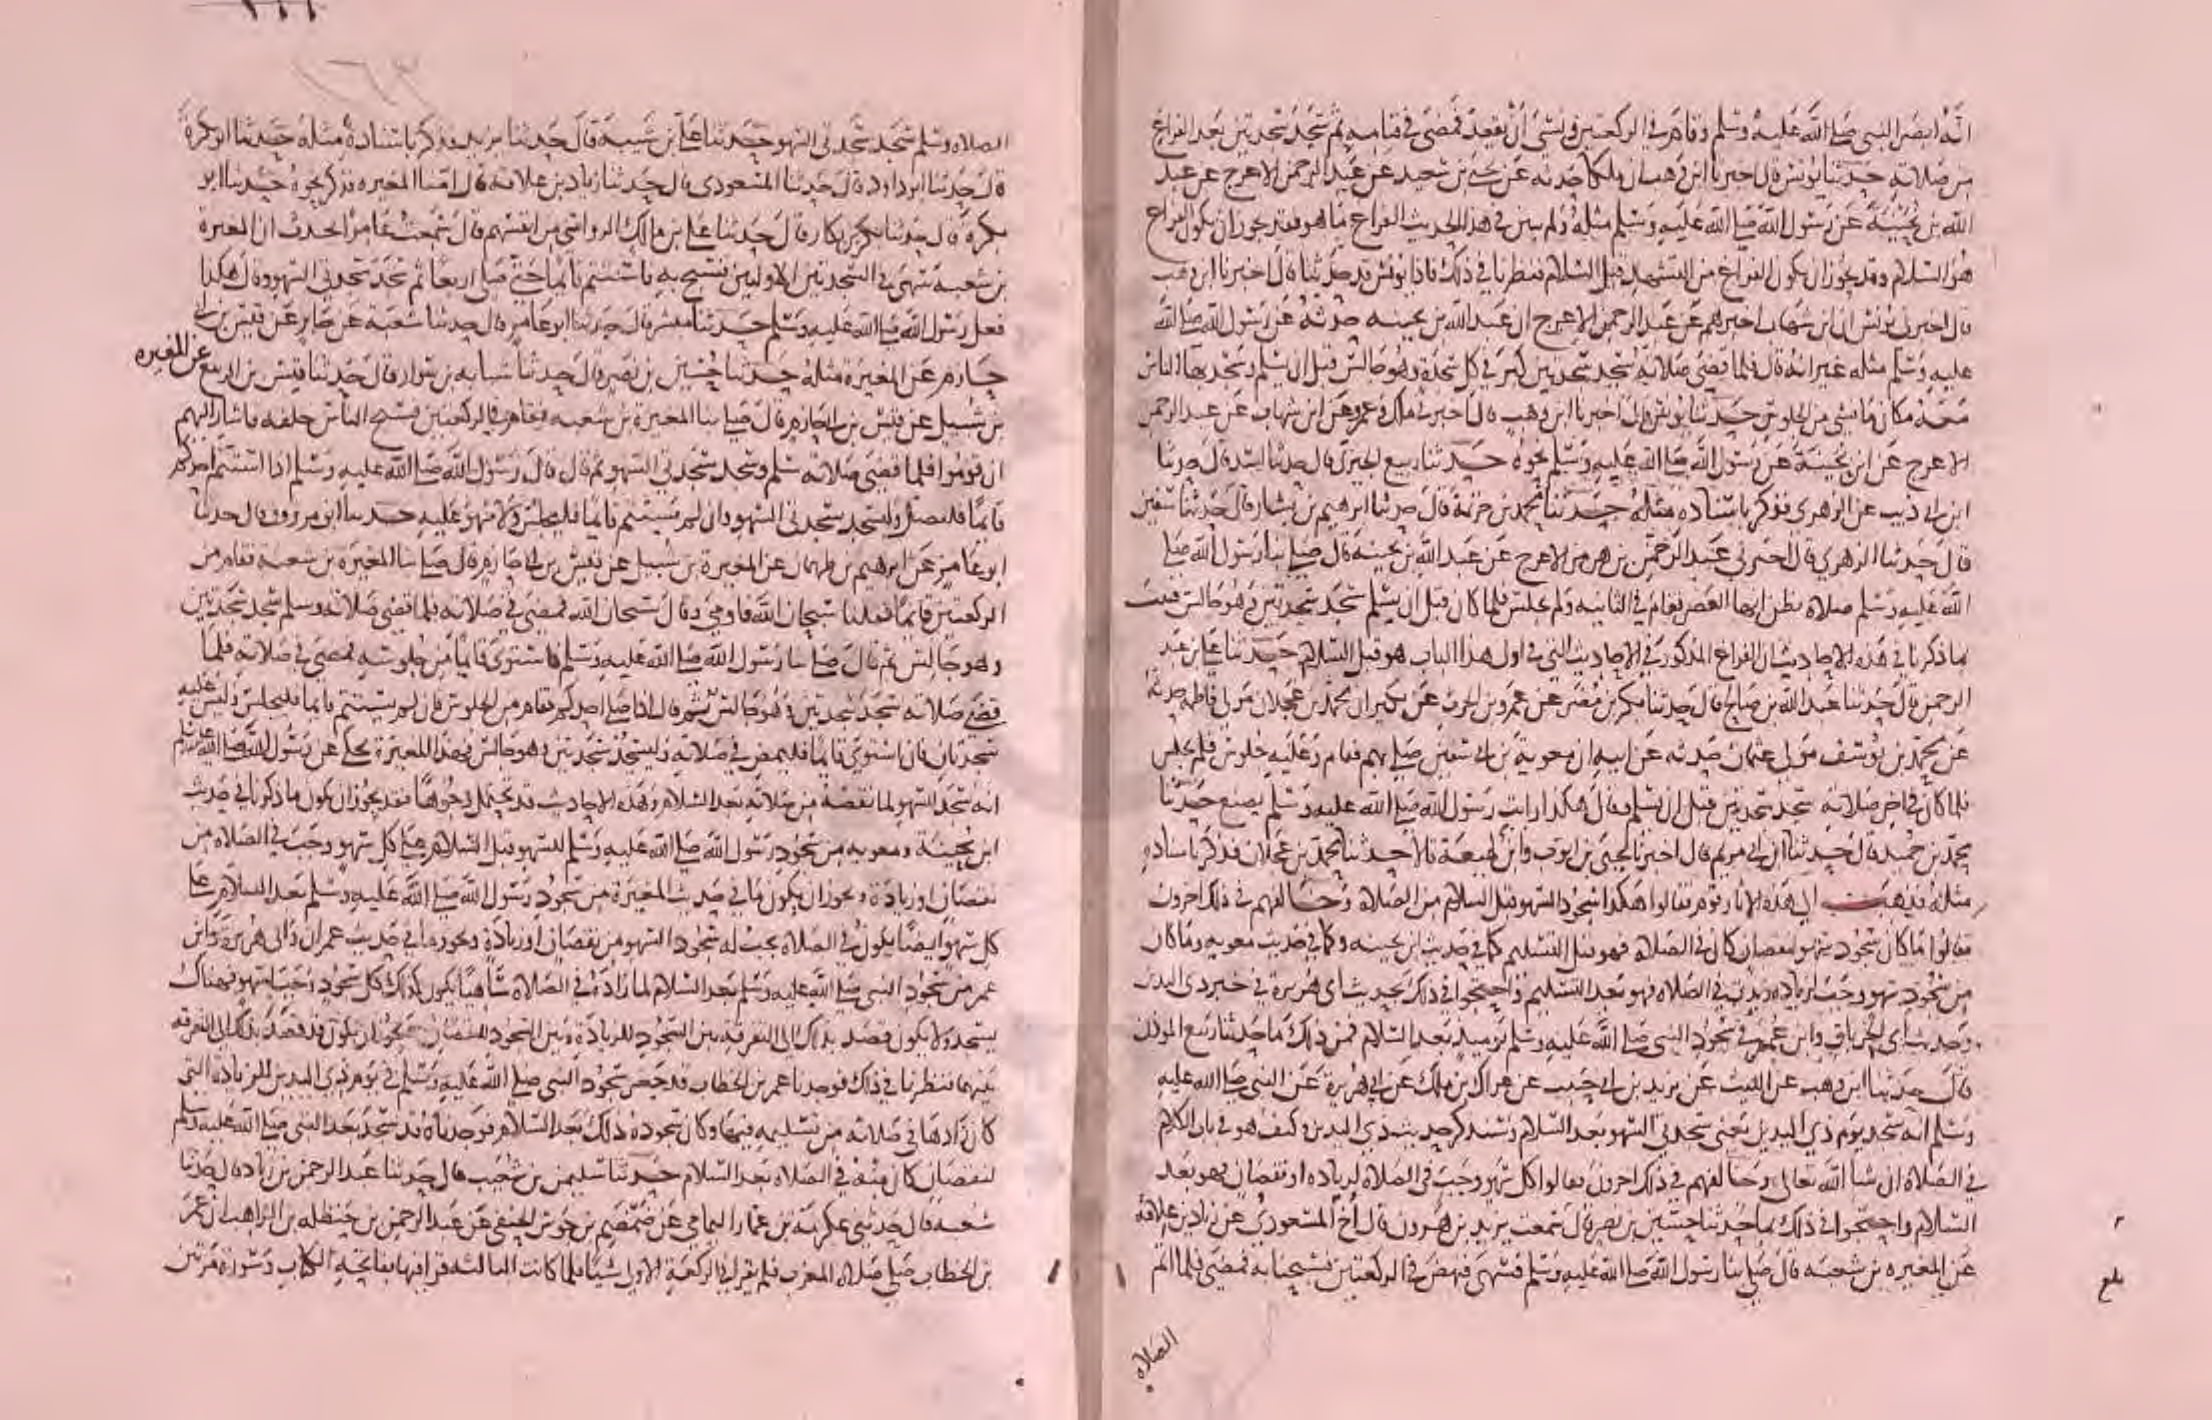 انه ابصر النبي صلى الله عليه وسلم وقام في الركعتين ونسي أن يقعد فمضى في قيامه ثم سجد سجدتين بعد الفراغ
من صلاته حدثنا يونس قال اخبرنا ابن وهب ان مالكا حدثه عن يحيى بن سعيد عن عبد الرحمن الاعرج عن عبد
الله بن بحينة عن رسول الله صلى الله عليه وسلم مثله ولم يبين في هذا الحديث الفراغ ما هو فقد يجوز ان يكون الفراغ
هو السلام وقد يجوز ان يكون الفراغ من التشهد قبل السلام فنظرنا في ذلك فاذا يونس قد حدثنا قال اخبرنا ابن وهب
قال اخبرني يونس ان ابن شهاب اخبرهم عن عبد الرحمن الاعرج ان عبد الله بن بحينه حدثه عن رسول الله صلى الله
عليه وسلم مثله غير انه قال فلما قضى صلاته سجد سجدتين كبر في كل سجدة وهو جالس قبل ان يسلم وسجد بهما الناس
معه مكان ما نسي من الجلوس حدثنا يونس قال اخبرنا ابن وهب قال اخبرني ملك وعمرو عن ابن شهاب عن عبد الرحمن
الاعرج عن ابن بحينة عن رسول الله صلى الله عليه وسلم نحوه حدثنا ربيع الجيزي قال حدثنا اسد قال حدثنا
ابن ابي ذيب عن الزهري فذكر باسناده مثله حدثنا محمد بن خزيمة قال حدثنا ابرهيم بن بشار قال حدثنا سفين
قال حدثنا الزهري قال اخبرني عبد الرحمن بن هرمز الاعرج عن عبد الله بن بحينة قال صلى بنا رسول الله صلى
الله عليه وسلم صلاه نظن انها العصر فقام في الثانيه ولم يجلس فلما كان قبل ان يسلم سجد سجدتين وهو جالس فثبت
بما ذكرنا في هذه الاحاديث ان الفراغ المذكور في الاحاديث التي في اول هذا الباب هو قبل السلام حدثنا علي بن عبد
الرحمن قال حدثنا عبد الله بن صالح قال حدثنا بكر بن مضر عن عمرو بن الحرث عن بكير ان محمد بن عجلان مولى فاطمه حدثه
عن محمد بن يوسف مولى عثمان حدثه عن ابيه ان معوية بن ابي سفين صلى بهم فقام وعليه جلوس فلم يجلس
فلما كان في اخر صلاته سجد سجدتين قبل ان يسلم وقال هكذا رايت رسول الله صلى الله عليه وسلم يصنع حدثنا
محمد بن حميد قال حدثنا ابن ابي مريم قال اخبرنا يحيى بن ايوب وابن لهيعة قالا حدثنا محمد بن عجلان فذكر باسناده
مثله فذهب الى هذه الاثار قوم فقالوا هكذا سجود السهو قبل السلام من الصلاة وخالفهم في ذلك اخرون
فقالوا ما كان سجود سهو لنقصان كان في الصلاة فهو قبل التسليم كما في حديث ابن بحينه وكما في حديث معويه وما كان
من سجود سهو وجب لزياده زيدت في الصلاه فهو بعد التسليم واحتجوا في ذلك بحديث ابي هريرة في خبر ذي اليدين
وحديث ابي الخرباق وابن عمر في سجود النبي صلى الله عليه وسلم يوميذ بعد السلام فمن ذلك ما حدثنا ربيع الموذن
قال حدثنا ابن وهب عن الليث عن يزيد بن ابي حبيب عن عراك بن ملك عن ابي هريرة عن النبي صلى الله عليه
وسلم انه سجد يوم ذي اليدين يعني سجدتي السهو بعد السلام وسنذكر حديث ذي اليدين وكيف هو في باب الكلام
في الصلاة ان شا الله تعالى وخالفهم في ذلك اخرون فقالوا كل سهو وجب في الصلاة لزياده او نقصان فهو بعد
السلام واحتجوا في ذلك بما حدثنا حسين بن نصر قال سمعت يزيد بن هرون قال أنا المسعودي عن زياد بن علاقة
عن المغيره بن شعبه قال صلى بنا رسول الله صلى الله عليه وسلم فسهى فنهض في الركعتين فسبحنا به فمضى فلما اتم
الصلاه
بلغ
١٦٣
الصلاه وسلم سجد سجدتي السهو حدثنا علي بن شيبة قال حدثنا يزيد فذكر باسناده مثله حدثنا ابو بكرة
قال حدثنا ابو داود قال حدثنا المسعودي قال حدثنا زياد بن علاقه قال امنا المغيره فذكر نحوه حدثنا ابو
بكره قال حدثنا بكر بن بكار قال حدثنا علي بن مالك الرواسي من انفسهم قال سمعت عامرا يحدث ان المغيره
بن شعبه سهى في السجدتين الاوليين فسبح به فاستتم قايما حتى صلى اربعا ثم سجد سجدتي السهو وقال هكذا
فعل رسول الله صلى الله عليه وسلم حدثنا مبشر قال حدثنا ابو عامر قال حدثنا شعبة عن جابر عن قيس بن ابي
حازم عن المغيرة مثله حدثنا حسين بن نصر قال حدثنا شبابه بن سوار قال حدثنا قيس بن الربيع عن المغيره
بن شبيل عن قيس بن ابي حازم قال صلى بنا المغيرة بن شعبه فقام في الركعتين فسبح الناس خلفه فاشار اليهم
ان قوموا فلما قضى صلاته سلم وسجد سجدتي السهو ثم قال قال رسول الله صلى الله عليه وسلم اذا استتم احدكم
قايما فليصل وليسجد سجدتي السهو وان لم يستتم قايما فليجلس ولا سهو عليه حدثنا ابن مرزوق قال حدثنا
ابو عامر عن ابرهيم بن طهمان عن المغيرة بن شبيل عن قيس بن ابي حازم قال صلى بنا المغيرة بن شعبة فقام من
الركعتين قايما فقلنا سبحان الله فاومى وقال سبحان الله فمضى في صلاته فلما قضى صلاته وسلم سجد سجدتين
وهو جالس ثم قال صلى بنا رسول الله صلى الله عليه وسلم فاستوى قايما من جلوسه فمضى في صلاته فلما
قضى صلاته سجد سجدتين وهو جالس ثم قال اذا صلى احدكم فقام من الجلوس فان لم يستتم قايما فليجلس وليس عليه
سجدتان فان استوى قايما فليمض في صلاته وليسجد سجدتين وهو جالس فهذا المغيرة يحكي عن رسول الله صلى الله عليه وسلم
انه سجد للسهو لما نقصه من صلاته بعد السلام وهذه الاحاديث قد تحتمل وجوها فقد يجوز ان يكون ما ذكرنا في حديث
ابن بحينة ومعويه من سجود رسول الله صلى الله عليه وسلم للسهو قبل السلام على كل سهو وجب في الصلاه من
نقصان او زيادة ويجوز ان يكون ما في حديث المغيرة من سجود رسول الله صلى الله عليه وسلم بعد السلام على
كل سهو ايضا يكون في الصلاة يجب له سجود السهو من نقصان او زيادة ويجوز ما في حديث عمران وابي هريرة وابن
عمر من سجود النبي صلى الله عليه وسلم بعد السلام لما زاده في الصلاة ساهيا يكون كذلك كل سجود وجب لسهو فهناك
يسجد ولا يكون قصد بذلك الى التفرقه بين السجود للزيادة وبين السجود للنقصان ويجوز ان يكون قد قصد بذلك الى التفرقه
بينهما فنظرنا في ذلك فوجدنا عمر بن الخطاب قد حضر سجود النبي صلى الله عليه وسلم في يوم ذي اليدين للزيادة التي
كان زادها في صلاته من تسليمه فيها وكان سجوده ذلك بعد السلام فوجدناه قد سجد بعد النبي صلى الله عليه وسلم
لنقصان كان منه في الصلاه بعد السلام حدثنا سليمن بن شعيب قال حدثنا عبد الرحمن بن زياد قال حدثنا
شعبه قال حدثني عكرمة بن عمار اليمامي عن ضمضم بن جوس الحنفي عن عبد الرحمن بن حنظله بن الراهب ان عمر
بن الخطاب صلى صلاه المغرب فلم يقرا في الركعة الاولى شيا فلما كانت الثالثه قرا فيها بفاتحه الكتاب وسورة مرتين